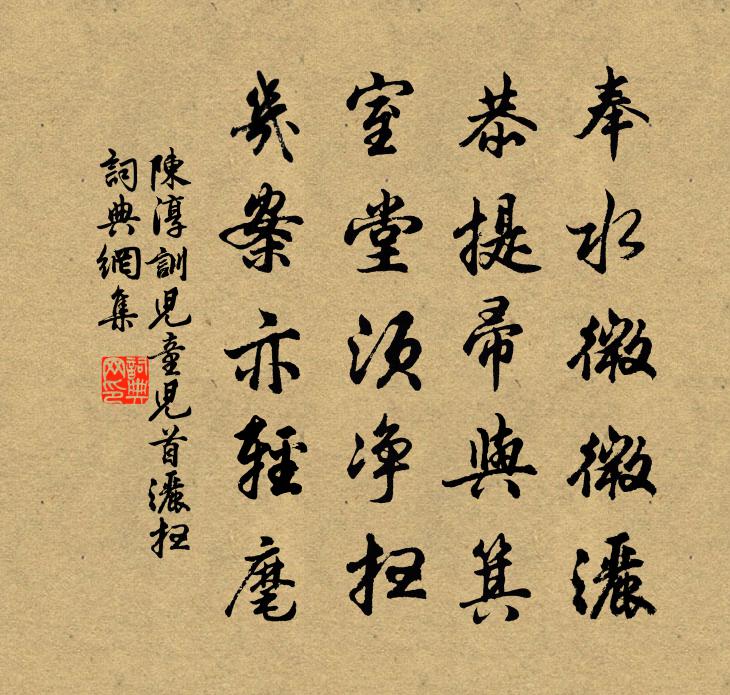 奉水微微灑
恭提帚與箕
室堂須净扫
幾案亦輕麾
陳淳訓児童児首灑扫
詞典網集
詞典網印